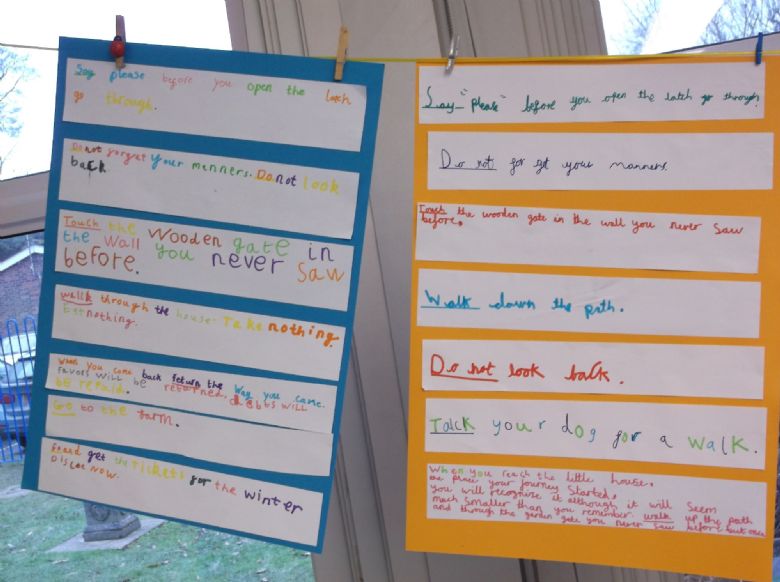 Say please before you open the latch
go through.
Do not forget your manners. Do not look
back
Touch the wooden gate in
the wall you never saw
before.
wallk through the house. Take nothing.
nothing.
When you come back return the way you came.
Favors will be returned, debts will
be repaid.
Go to the farm.
get the tickets for the winter
Disco now.
Say "please" before you open the latch go through
Do not for get your manners.
Touch the wooden gate in the wall you never saw
before.
Walk down the path.
Do not look back.
Talck your dog for a walk.
When you reach the little house.
the place your journey started.
you will recognise it although it will seem
much smaller than you remember. walk up the path
and through the garden gate you never saw before but once